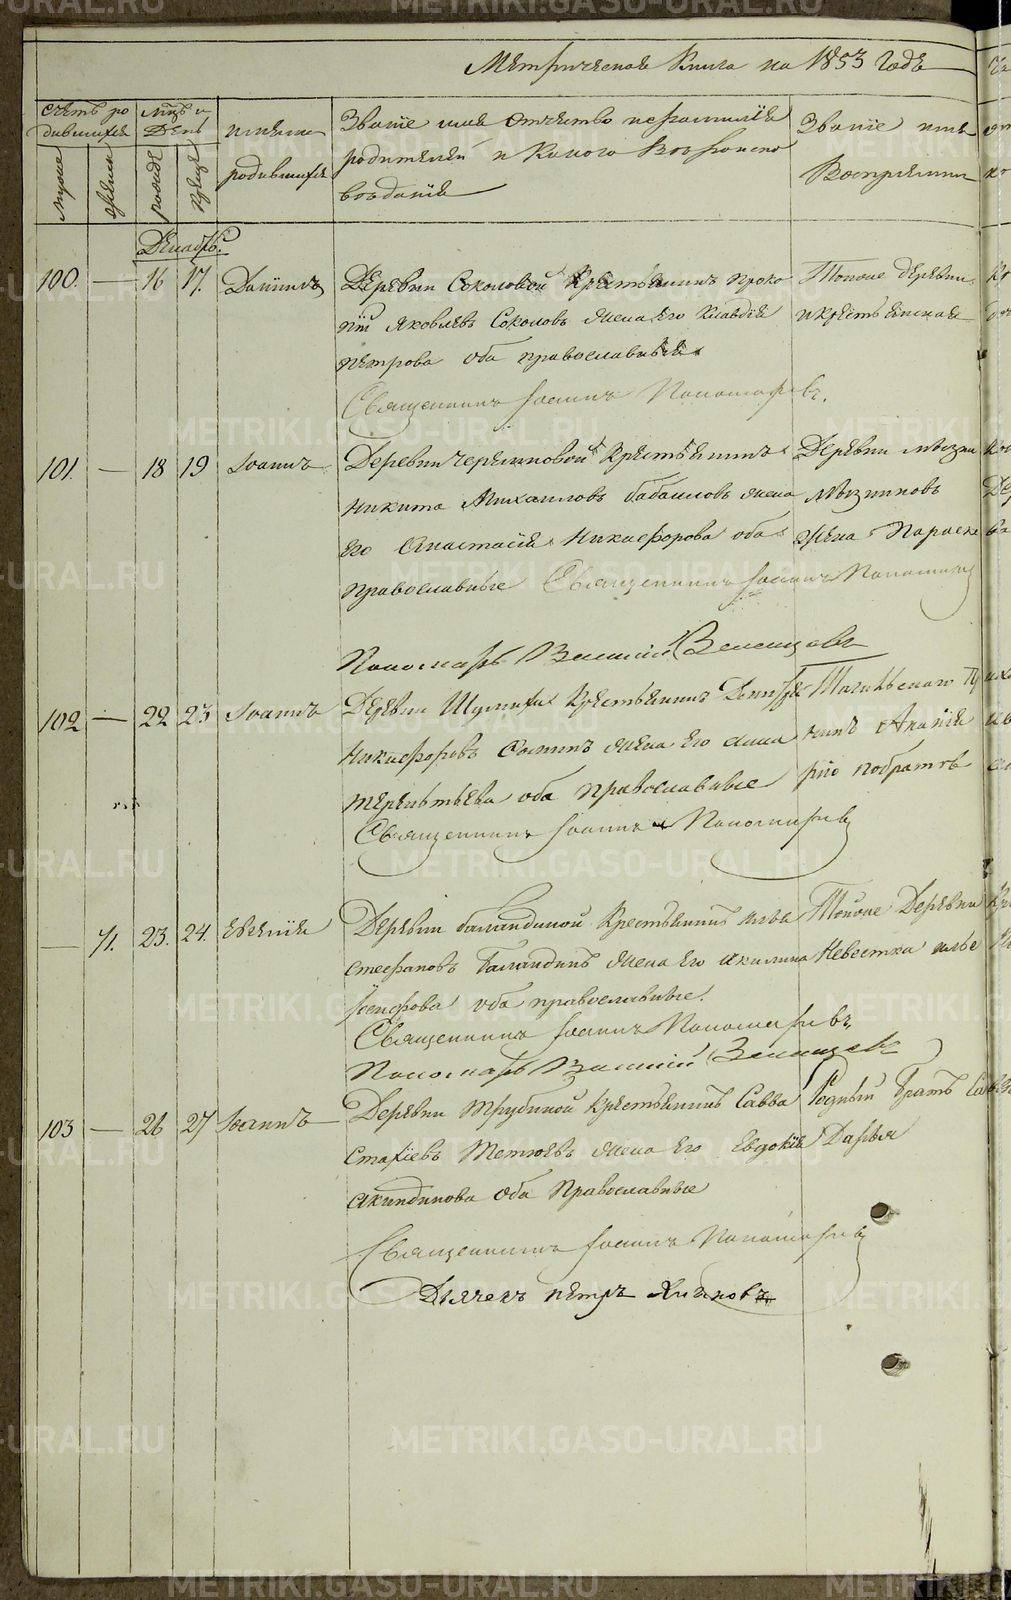 Метрическая Книга на 1853 Годъ
счетъ ро
дившихся
мужс
женск
мцъ и
День
рожде
креще
имяна
родившихся
Званіе имя Отчество и Фамилія
родителей и Какого Вѣроиспо
вѣданія
Званіе имя
Воспріемни
Декабрь.
100. — 16 17. Даніилъ
Деревни Соколовой Крестьянинъ Проко
пій Яковлевъ Соколовъ жена его Клавдія
петрова оба православныя
Священникъ Іоаннъ Пономаревъ.
Тойже деревни
и крестьянская
101. — 18 19 Іоаннъ
Деревни Черемновой Крестьянинъ
Никита Михаиловъ бабаиловъ жена
его Анастасія Никифорова оба
православные Священникъ Іоаннъ Пономарев
Пономарь Василій Зеленцовъ
Деревни мызни
Мызниковъ
Жена Параске
102 — 22 23 Іоаннъ
Деревни Шумихи Крестьянинъ
Никифоровъ жена его Анна
терентьева оба православные
Священникъ Іоаннъ Пономарев
Тагильскаго
Ананія
— 71. 23. 24. Евгенія
Деревни баландиной Крестьянинъ илья
стефановъ баландинъ жена его Акилина
Іосифова оба православные.
Священникъ Іоаннъ Пономаревъ
Пономарь Василій Зеленцовъ
Тойже Деревни
Невестка илье
103 — 26 27 Іоаннъ
Деревни Трубиной крестьянинъ Савва
Стахіевъ Тетюевъ жена его Евдокія
Акиндинова оба Православные
Священникъ Іоаннъ Пономарев
Дьячекъ петръ Хигановъ
Родный братъ Савв
Дарья
METRIKI.GASO-URAL.RU